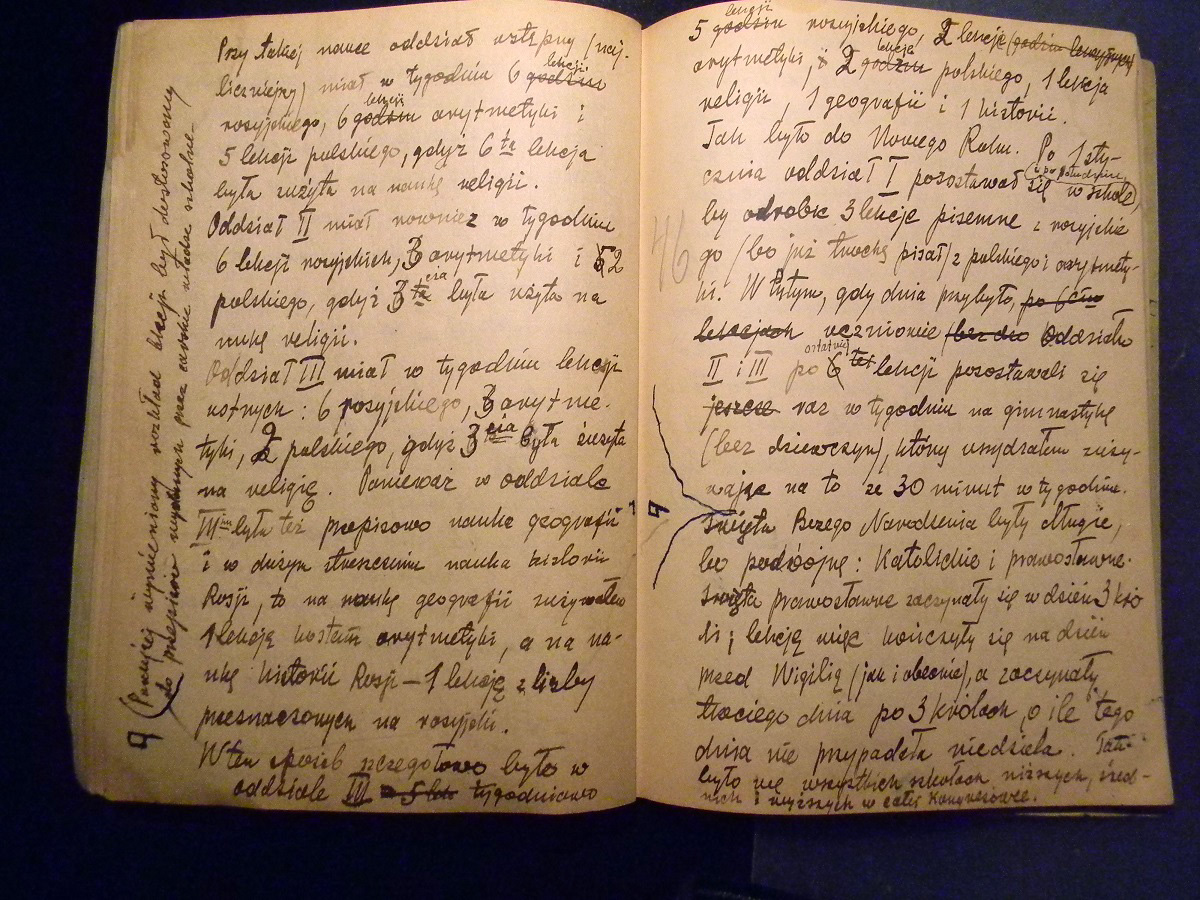 Przy takiej nauce oddział wstępny (naj-
liczniejszy) miał w tygodniu 6 lekcji godzin
rosyjskiego, 6 lekcji godzin arytmetyki i
5 lekcji polskiego, gdyż 6ta lekcja
była zużyta na naukę religii.
Oddział II miał również w tygodniu
6 lekcji rosyjskich, 3 arytmetyki i 2
polskiego, gdyż 3cia była użyta na
naukę religii.
Oddział III miał w tygodniu lekcji
ustnych: 6 rosyjskiego, 3 arytme-
tyki, 2 polskiego, gdyż 3cia była zużyta
na religię. Ponieważ w oddziale
III-im była też przepisowo nauka geografii
i w dużym streszczeniu nauka historii
Rosji, to na naukę geografii zużywałem
1 lekcję kosztem arytmetyki, a na na-
ukę historii Rosji – 1 lekcję z liczby
przeznaczonych na rosyjski.
W ten sposób szczegółowo było w
oddziale III tygodniowo
9 (Powyżej wymieniony rozkład lekcji był dostosowany
do przepisów wydanych przez carskie władze szkolne.
5 lekcji godzin rosyjskiego, 2 lekcje
arytmetyki, i 2 lekcje godzin polskiego, 1 lekcja
religii, 1 geografii i 1 historii.
Tak było do Nowego Roku. Po 1 sty-
cznia oddział I pozostawał się (i po południu w szkole),
by odrobić 3 lekcje pisemne z rosyjskie
go (bo już trochę pisał) z polskiego i arytmety-
ki. W lutym, gdy dnia przybyło,
lekcjach uczniowie oddziału
II i III po ostatniej lekcji pozostawali się
jeszcze raz w tygodniu na gimnastykę
(bez dziewczyn), którą urządzałem zuży-
wając na to ze 30 minut w tygodniu.
9 Święta Bożego Narodzenia były długie,
bo podwójne: Katolickie i prawosławne.
Święta prawosławne zaczynały się w dzień 3 kró
li; lekcje więc kończyły się na dzień
przed Wigilią (jak i obecnie), a zaczynały
trzeciego dnia po 3 królach, o ile tego
dnia nie przypadała niedziela. Tak
było we wszystkich szkołach niższych, śred-
nich i wyższych w całej Kongresówce.
46